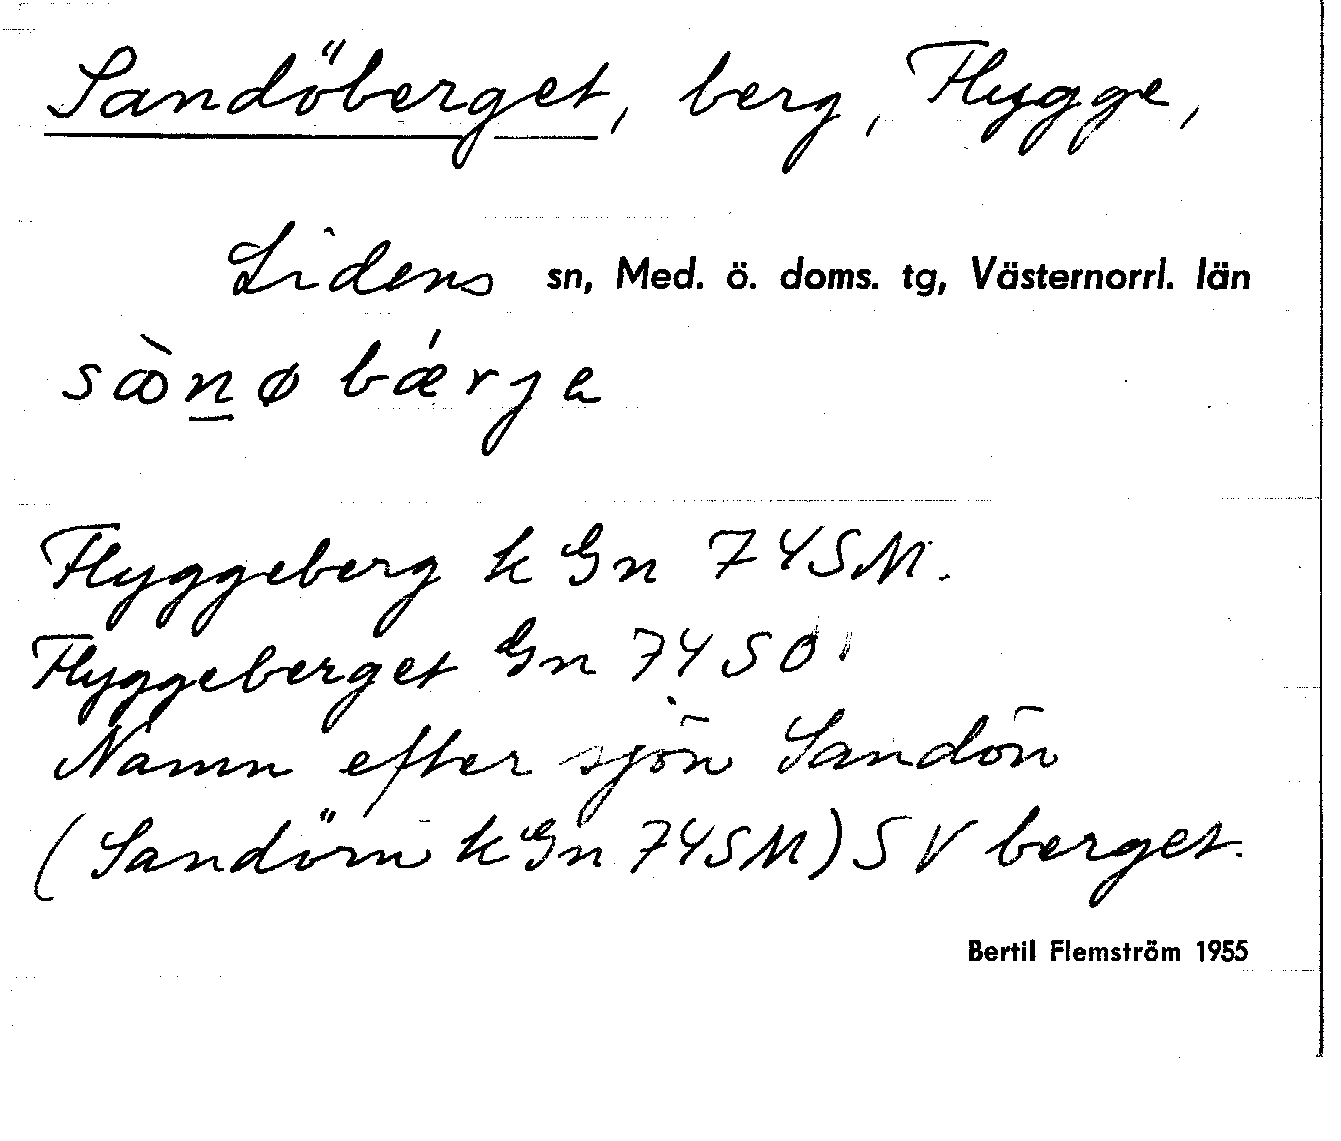 Sandöberget, berg, Flygge,
Lidens sn, Med. ö. doms. tg, Västernorrl. län
sàn̲ø bǽrje
Flyggeberg k Gn 74SM.
Flyggeberget Gn 74SO
Namn efter sjön Sandön
(Sandörn k Gn 74SM) SV berget.
Bertil Flemström 1955